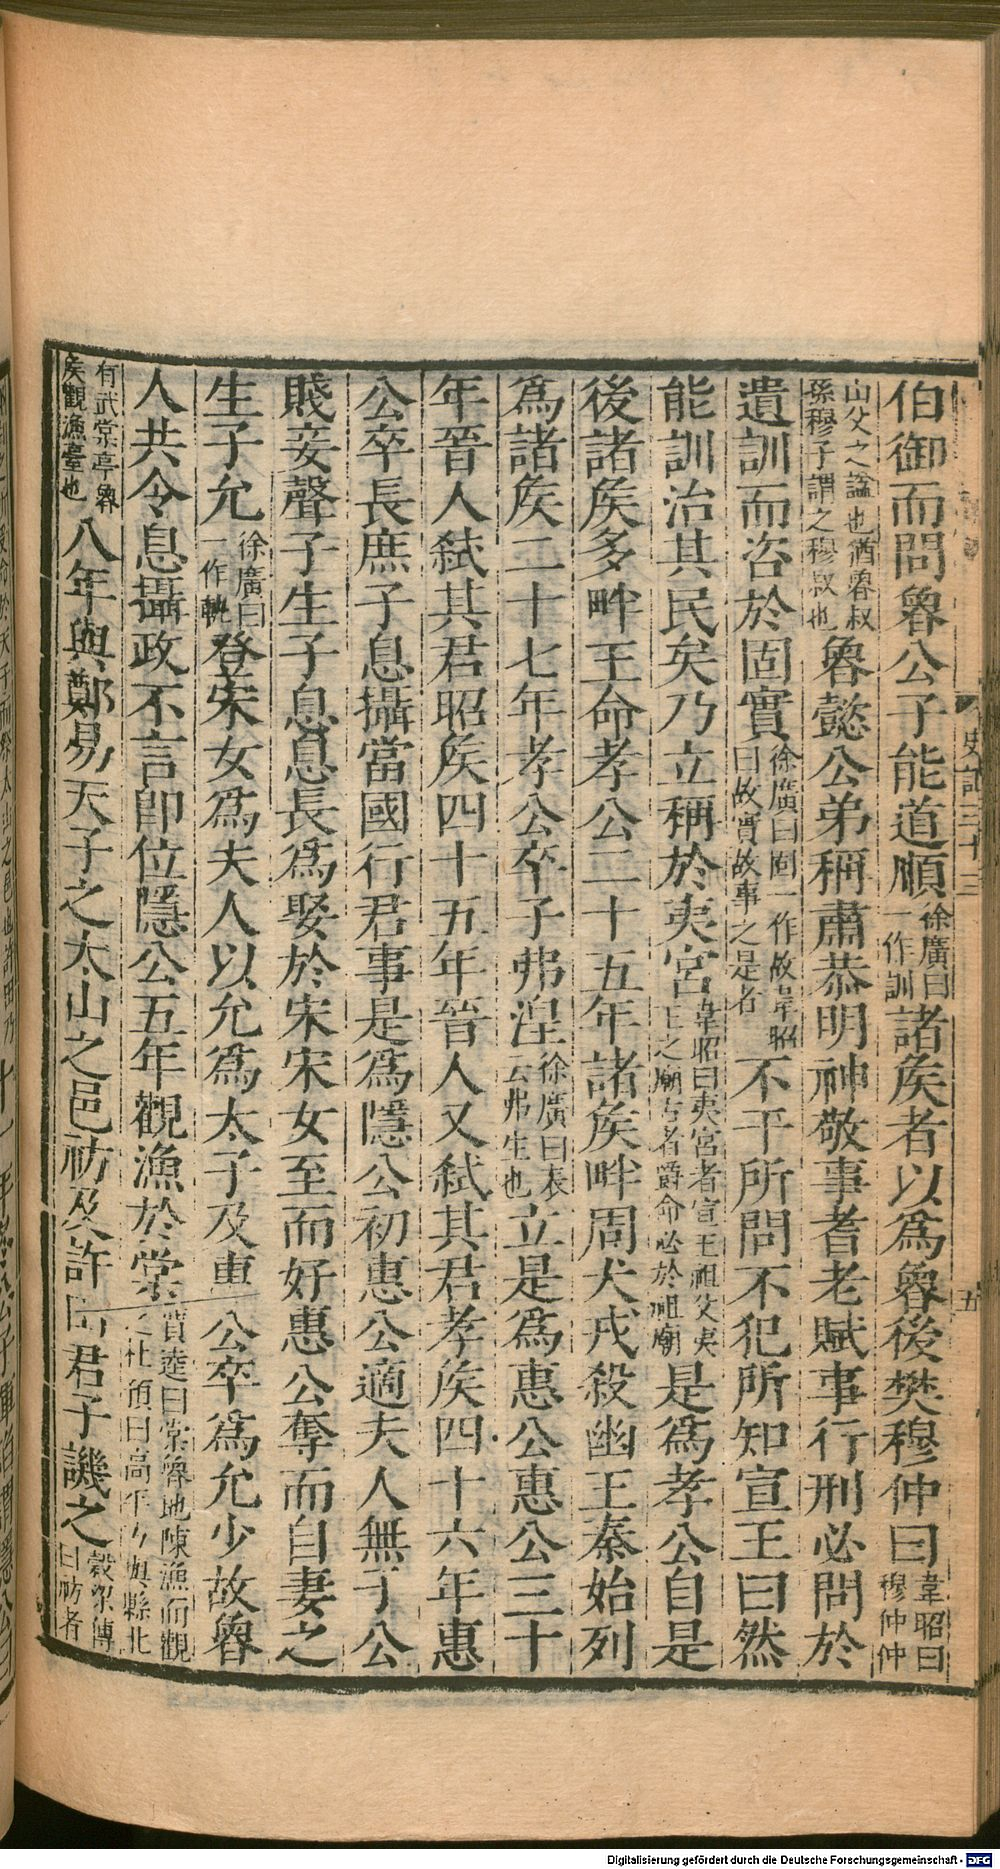 史記三十三
五
伯御而問魯公子能道順徐廣曰一作訓諸矦者以爲魯後樊穆仲曰韋昭曰穆仲仲
山父之謚也猶魯叔孫穆子謂之穆叔也魯懿公弟稱肅恭明神敬事耆老賦事行刑必問於
遺訓而咨於固實徐廣曰固一作故韋昭曰故實故事之是者不干所問不犯所知宣王曰然
能訓治其民矣乃立稱於夷宮韋昭曰夷宮者宣王祖父夷王之廟古者爵命必於祖廟是爲孝公自是
後諸矦多畔王命孝公二十五年諸矦畔周犬戎殺幽王秦始列
爲諸矦二十七年孝公卒子弗湟徐廣曰表云弗生也立是爲惠公惠公三十
年晉人弑其君昭矦四十五年晉人又弑其君孝矦四十六年惠
公卒長庶子息攝當國行君事是爲隱公初惠公適夫人無子公
賤妾聲子生子息息長爲娶於宋宋女至而好惠公奪而自妻之
生子允徐廣曰一作軌登宋女爲夫人以允爲太子及惠公卒爲允少故魯
人共令息攝政不言卽位隱公五年觀漁於棠賈逵曰棠魯地陳漁而觀之杜預曰高平方與縣北
有武棠亭魯矦觀漁臺也八年與鄭易天子之太山之邑祊及許田君子譏之穀梁傳曰祊者
Digitalisierung gefördert durch die Deutsche Forschungsgemeinschaft - DFG